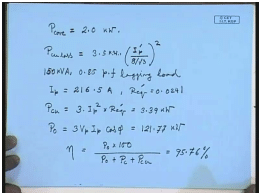 P_core = 2.0 kW.
P_cu loss = 3.5 kW. (Ip / 8/√3)²
150 kVA, 0.85 p.f lagging load
Ip = 216.5 A, Req = 0.0241
P_cu = 3. Ip² × Req = 3.39 kW
P_o = 3 Vp Ip cos φ = 121.77 kW
η = P_o × 100 / P_o + P_c + P_cu = 95.76 %